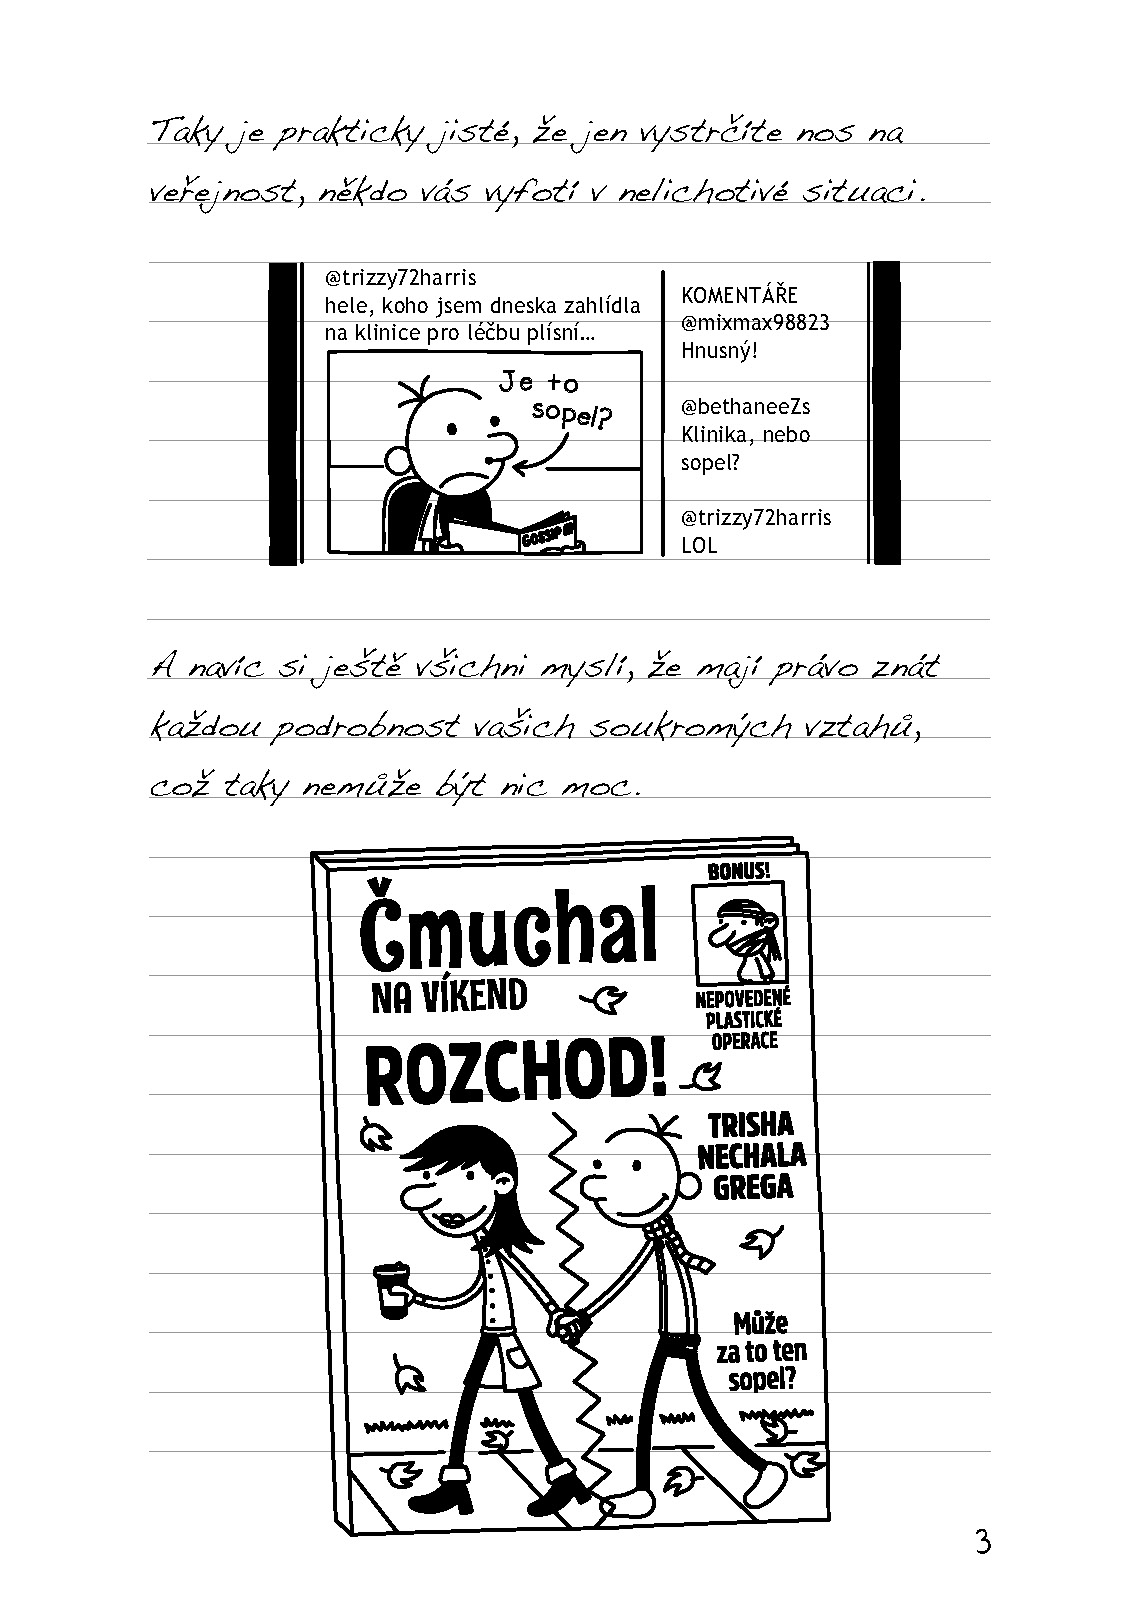 Taky je prakticky jisté, že jen vystrčíte nos na
veřejnost, někdo vás vyfotí v nelichotivé situaci.
@trizzy72harris
hele, koho jsem dneska zahlídla
na klinice pro léčbu plísní...
Je to
sopel?
GOSSIP
KOMENTÁŘE
@mixmax98823
Hnusný!
@bethaneeZs
Klinika, nebo
sopel?
@trizzy72harris
LOL
A navíc si ještě všichni myslí, že mají právo znát
každou podrobnost vašich soukromých vztahů,
což taky nemůže být nic moc.
Čmuchal
NA VÍKEND
BONUS!
NEPOVEDENÉ
PLASTICKÉ
OPERACE
ROZCHOD!
TRISHA
NECHALA
GREGA
Může
za to ten
sopel?
3